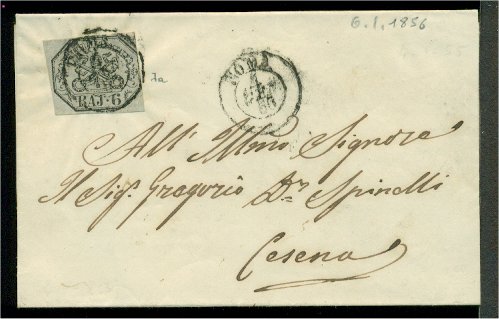 G. I. 1856
ROMA
BAJ·6
7a
ROMA
All' Illmo Signore
Il Sigr Gregorio Dr Spinelli
Cesena